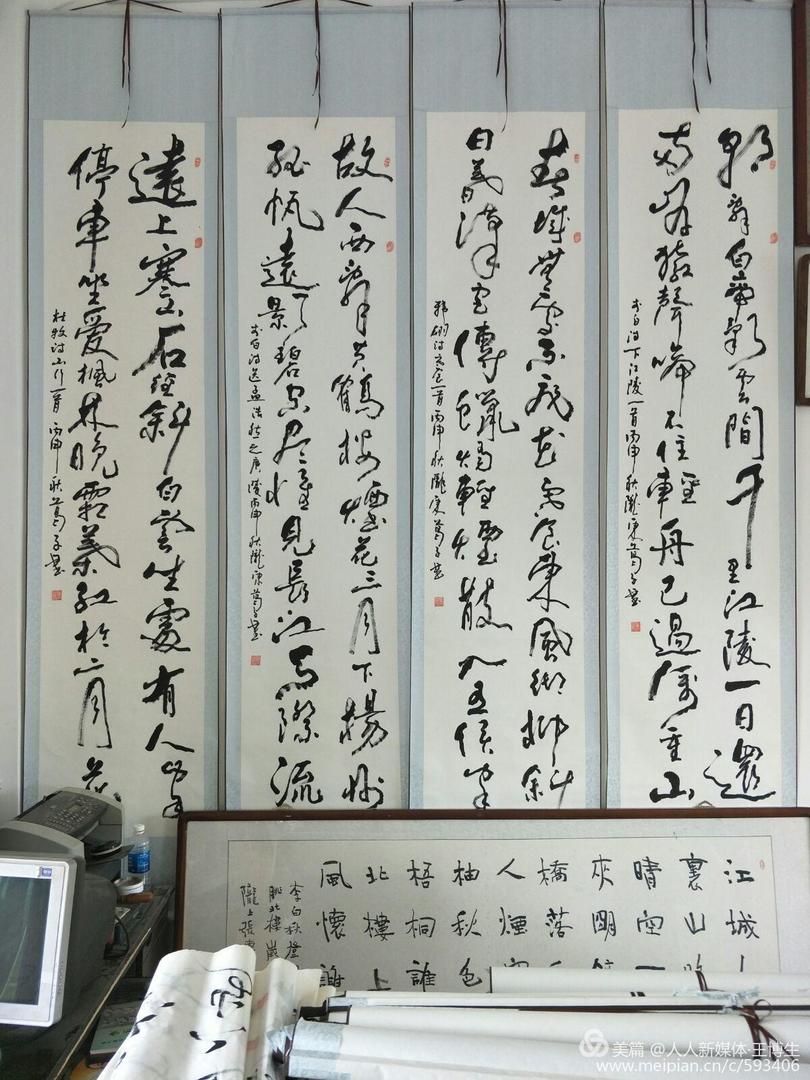 朝辭白帝彩雲間千里江陵一日還
兩岸猿聲啼不住輕舟已過萬重山
李白詩下江陵一首丙申秋隴東葛子書
春城無處不飛花寒食東風御柳斜
日暮漢宮傳蠟燭輕煙散入五侯家
韓翃詩寒食一首丙申秋隴東葛子書
故人西辭黃鶴樓煙花三月下揚州
孤帆遠影碧空盡惟見長江天際流
李白詩送孟浩然之廣陵丙申秋隴東葛子書
遠上寒山石徑斜白雲生處有人家
停車坐愛楓林晚霜葉紅於二月花
杜牧詩山行一首丙申秋葛子書
江城
裏山
晴空一
夾明
橋落
人煙
柚秋色
梧桐誰
北樓上
風懷謝
李白秋登
眺北樓
隴上張
美篇 @人人新媒体·王博生
www.meipian.cn/c/593406